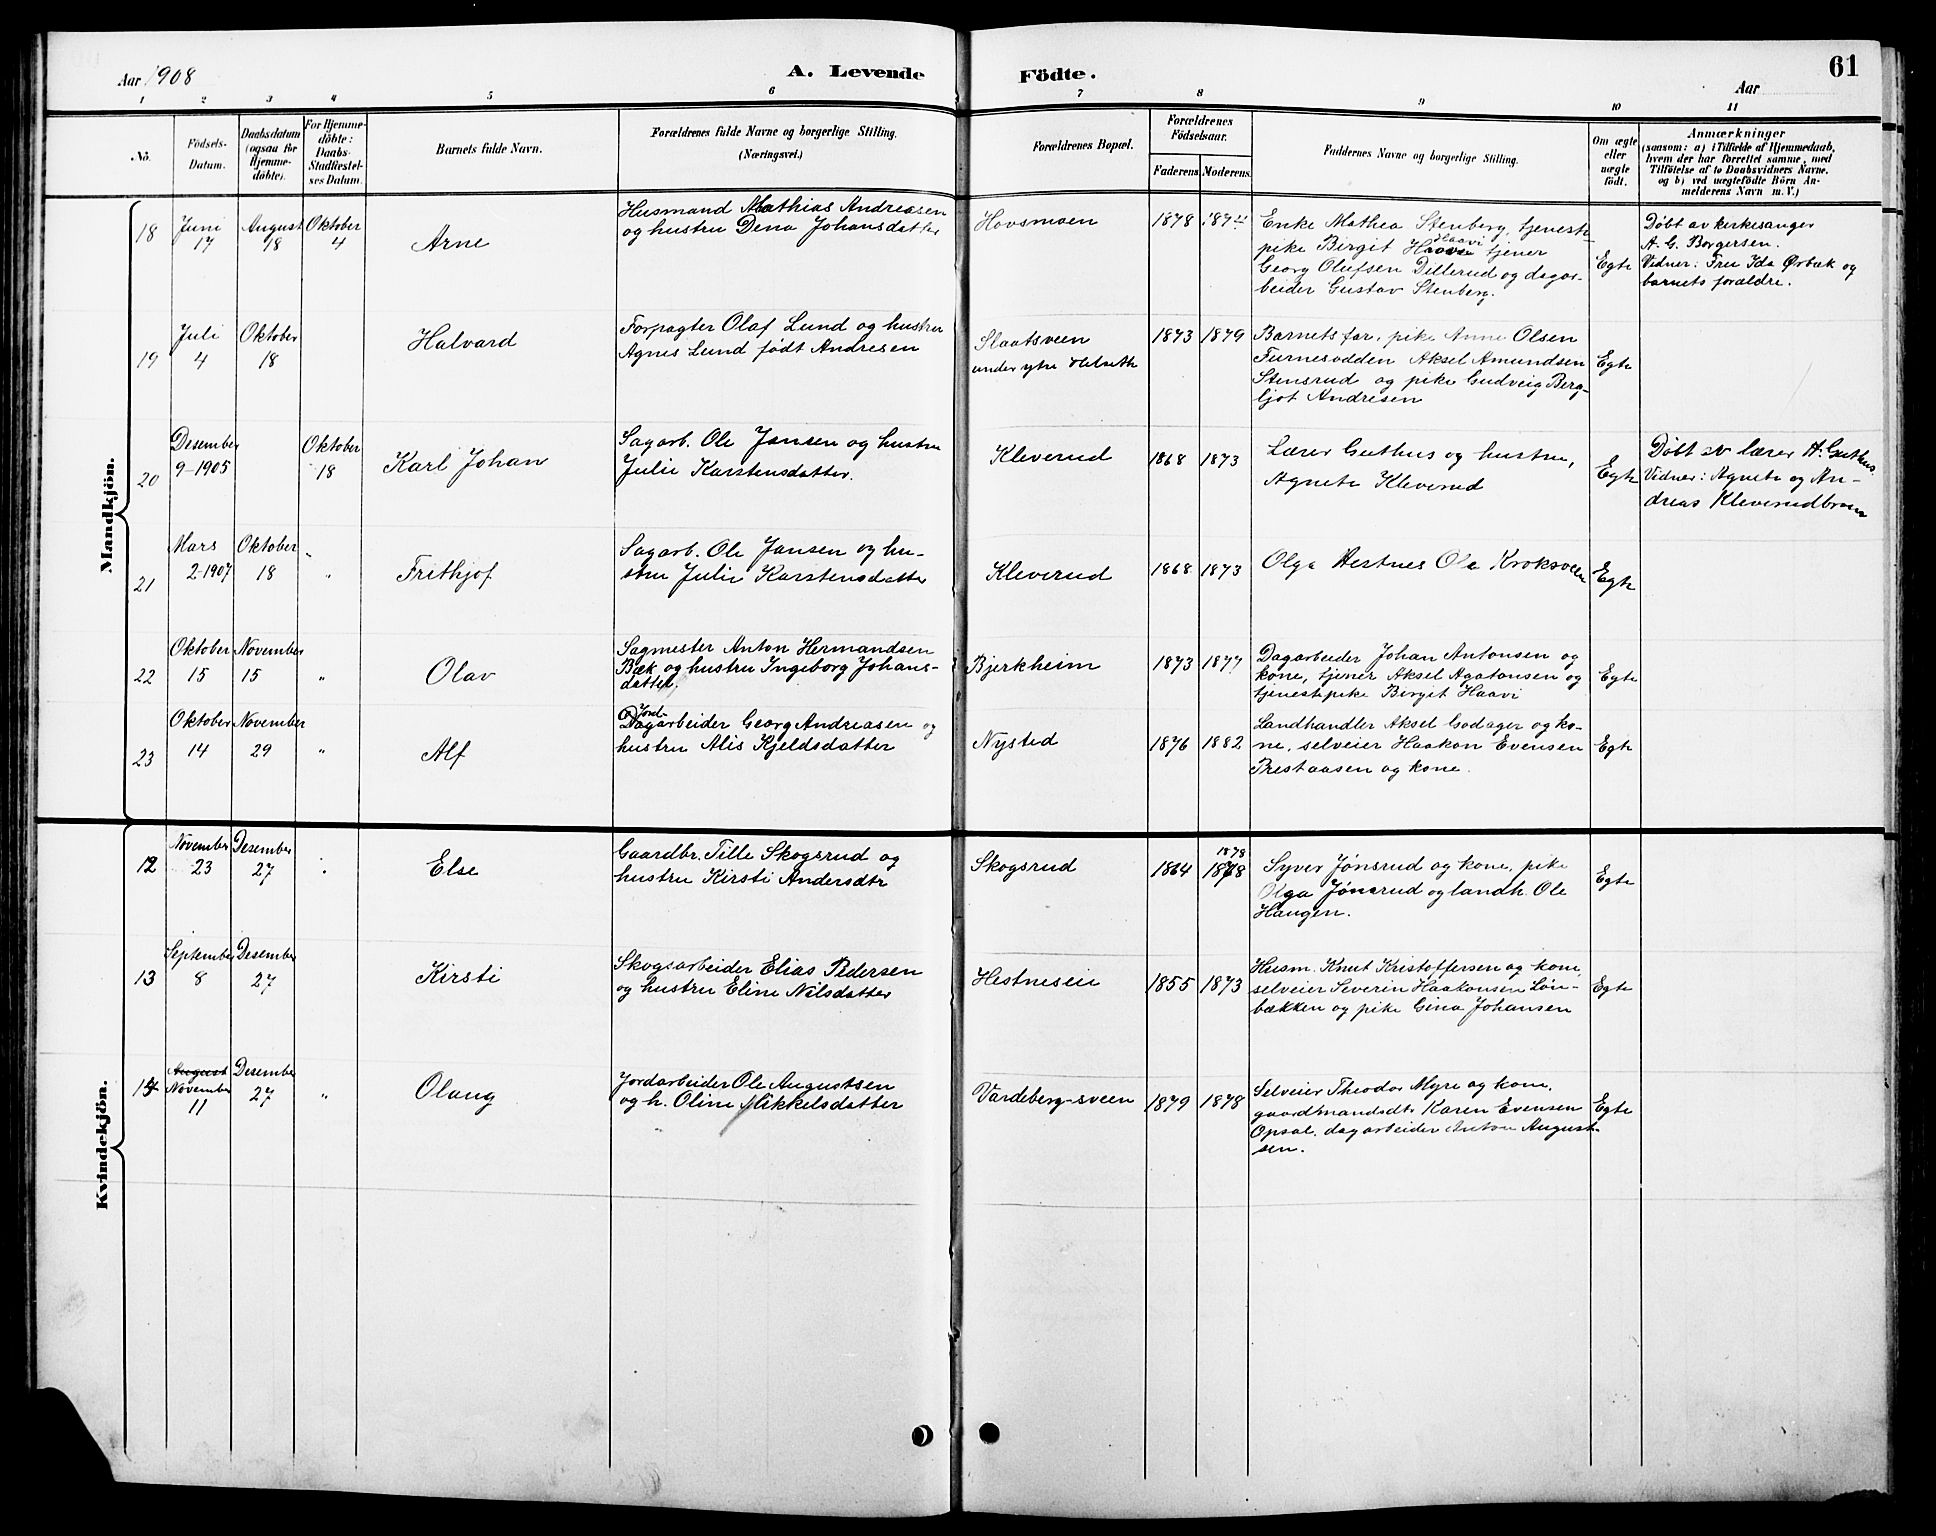 Aar 1908
A. Levende Födte.
Aar
61
1 2 3 4 5 6 7 8 9 10 11
No.
Födsels-
Datum.
Daabsdatum
(ogsaa för
Hjemme-
döbte).
For Hjemme-
döbte:
Daabs-
Stadfæstel-
ses Datum.
Barnets fulde Navn.
Forældrenes fulde Navne og borgerlige Stilling.
(Næringsvei.)
Forældrenes Bopæl.
Forældrenes
Födselsaar.
Faderens Moderens
Faddernes Navne og borgerlige Stilling.
Om ægte
eller
uægte
födt.
Anmærkninger
(saasom: a) i Tilfælde af Hjemmedaab,
hvem der har forrettet samme, med
Tilföielse af to Daabsvidners Navne,
og b) ved uægtefödte Börn An-
melderens Navn m. V.)
Mandkjön.
18
Juni
17
August
18
Oktober
4
Arne
Husmand Mathias Andreasen
og hustru Dena Johansdatter
Hovsmoen
1878
Enke Mathea Stenberg, tjeneste-
pike Birgit Haavi tjener
Georg Olufsen Dillerud og dagar-
beider Gustav Stenberg.
Egte
Döbt av kirkesanger
A. G. Borgersen.
Vidner: Fru Ida Ørbæk og
barnets forældre.
19
Juli
4
Oktober
18
Halvard
Forpagter Olaf Lund og hustru
Agnes Lund født Andresen
Slaatsveen
under ytre Helseth
1873 1879
Barnets far, pike Anne Olsen
Furnesodden Aksel Amundsen
Stensrud og pike Gudveig Berg-
ljot Andresen
Egte
20
Desember
9-1905
Oktober
18
Karl Johan
Sagarb. Ole Jansen og hustru
Julie Karstensdatter.
Kleverud
1868 1873
Lærer Guthus og hustru,
Agnete Kleverud
Egte
Döbt av lærer A. Guthus
Vidner: Agnete og An-
dreas Kleverudbraa
21
Mars
2-1907
Oktober
18
"
Frithjof
Sagarb. Ole Jansen og hu-
stru Julie Karstensdatter
Kleverud
1868 1873
Olga Hestnes Ole Kroksveen
Egte
22
Oktober
15
November
15
"
Olav
Sagmester Anton Hermandsen
Bæk og hustru Ingeborg Johans-
datter.
Bjerkheim
1873 1877
Dagarbeider Johan Antonsen og
kone, tjener Aksel Agatonsen og
tjenestepike Birgit Haavi
Egte
23
Oktober
14
November
29
"
Alf
Jord-
Dagarbeider Georg Andreasen og
hustru Alis Kjeldsdatter
Nysted
1876 1882
Landhandler Aksel Godager og ko-
ne, selveier Haakon Evensen
Prestaasen og kone.
Egte
Kvindekjön.
12
November
23
Desember
27
Else
Gaardbr. Tille Skogsrud og
hustru Kirsti Andersdtr
Skogsrud
1864
1878
Syver Jønsrud og kone, pike
Olga Jønsrud og landh. Ole
Haugen.
Egte
13
September
8
Desember
27
Kirsti
Skogsarbeider Elias Pedersen
og hustru Eline Nilsdatter
Hestneseie
1855 1873
Husm. Knut Kristoffersen og kone,
selveier Severin Haakonsen Løn-
bækken og pike Gina Johansen
Egte
14
August
November
11
Desember
27
"
Olaug
Jordarbeider Ole Augustsen
og h. Oline Mikkelsdatter
Vardeberg-sveen
1879 1878
Selveier Theodor Myre og kone,
gaardmandsdtr Karen Evensen
Opsal, dagarbeider Anton August-
sen.
Egte